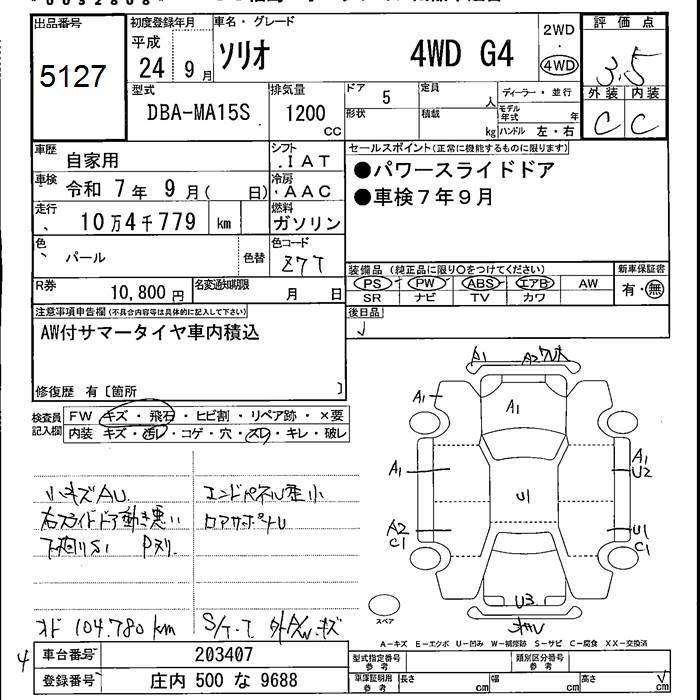 出品番号
5127
初度登録年月
平成
24 9月
車名・グレード
ソリオ 4WD G4
2WD
・
4WD
評価点
3.5
外装 内装
C C
型式
DBA-MA15S
排気量
1200
CC
ドア 5
形状
定員 人
積載 kg
ディーラー・並行
モデル年式 年
ハンドル 左・右
車歴 自家用
シフト
.IAT
セールスポイント(正常に機能するものに限ります)
●パワースライドドア
●車検7年9月
車検 令和 7年 9月( 日)
冷房
.AAC
走行
、 10万4千779 km
燃料
ガソリン
色
、 パール
色替
色コード
Z7T
R券 10,800円
名変通知期限
月 日
装備品 (純正品に限り○をつけてください)
PS PW ABS エアB AW
SR ナビ TV カワ
新車保証書
有・無
注意事項申告欄(不具合内容等は具体的に記入して下さい)
AW付サマータイヤ車内積込
後日品
修復歴 有〔箇所 〕
検査員記入欄
FW キズ・飛石・ヒビ割・リペア跡・×要
内装 キズ・汚レ・コゲ・穴・スレ・キレ・破レ
小キズAU
右スライドドア動き悪い
下廻りS1 Pヌリ
エンドパネル歪小
ロアサポートU
オド 104.780 km
S/T-T 外A/W キズ
A1
A2
A1
A1
A1
A1
U2
U1
A2
C1
U1
C1
U3
スペア
A-キズ E-エクボ U-凹み W-補修跡 S-サビ C-腐食 XX-交換済
4
車台番号 203407
登録番号 庄内 500 な 9688
型式指定番号
参考
類別区分番号
参考
車庫証明用
参考
長さ cm
幅 cm
高さ cm